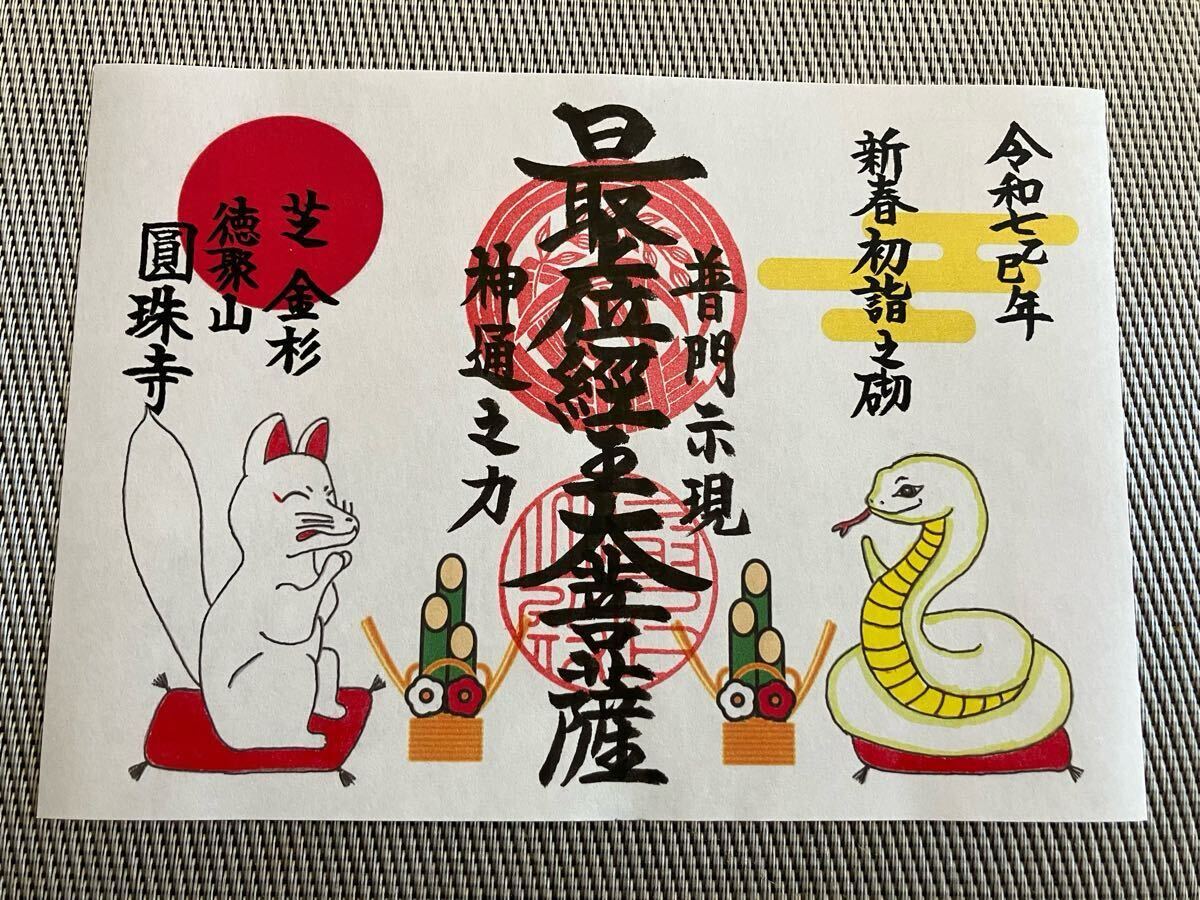 令和七乙巳年
新春初詣之砌
普門示現
最上位經王大菩薩
神通之力
芝金杉
徳聚山
圓珠寺